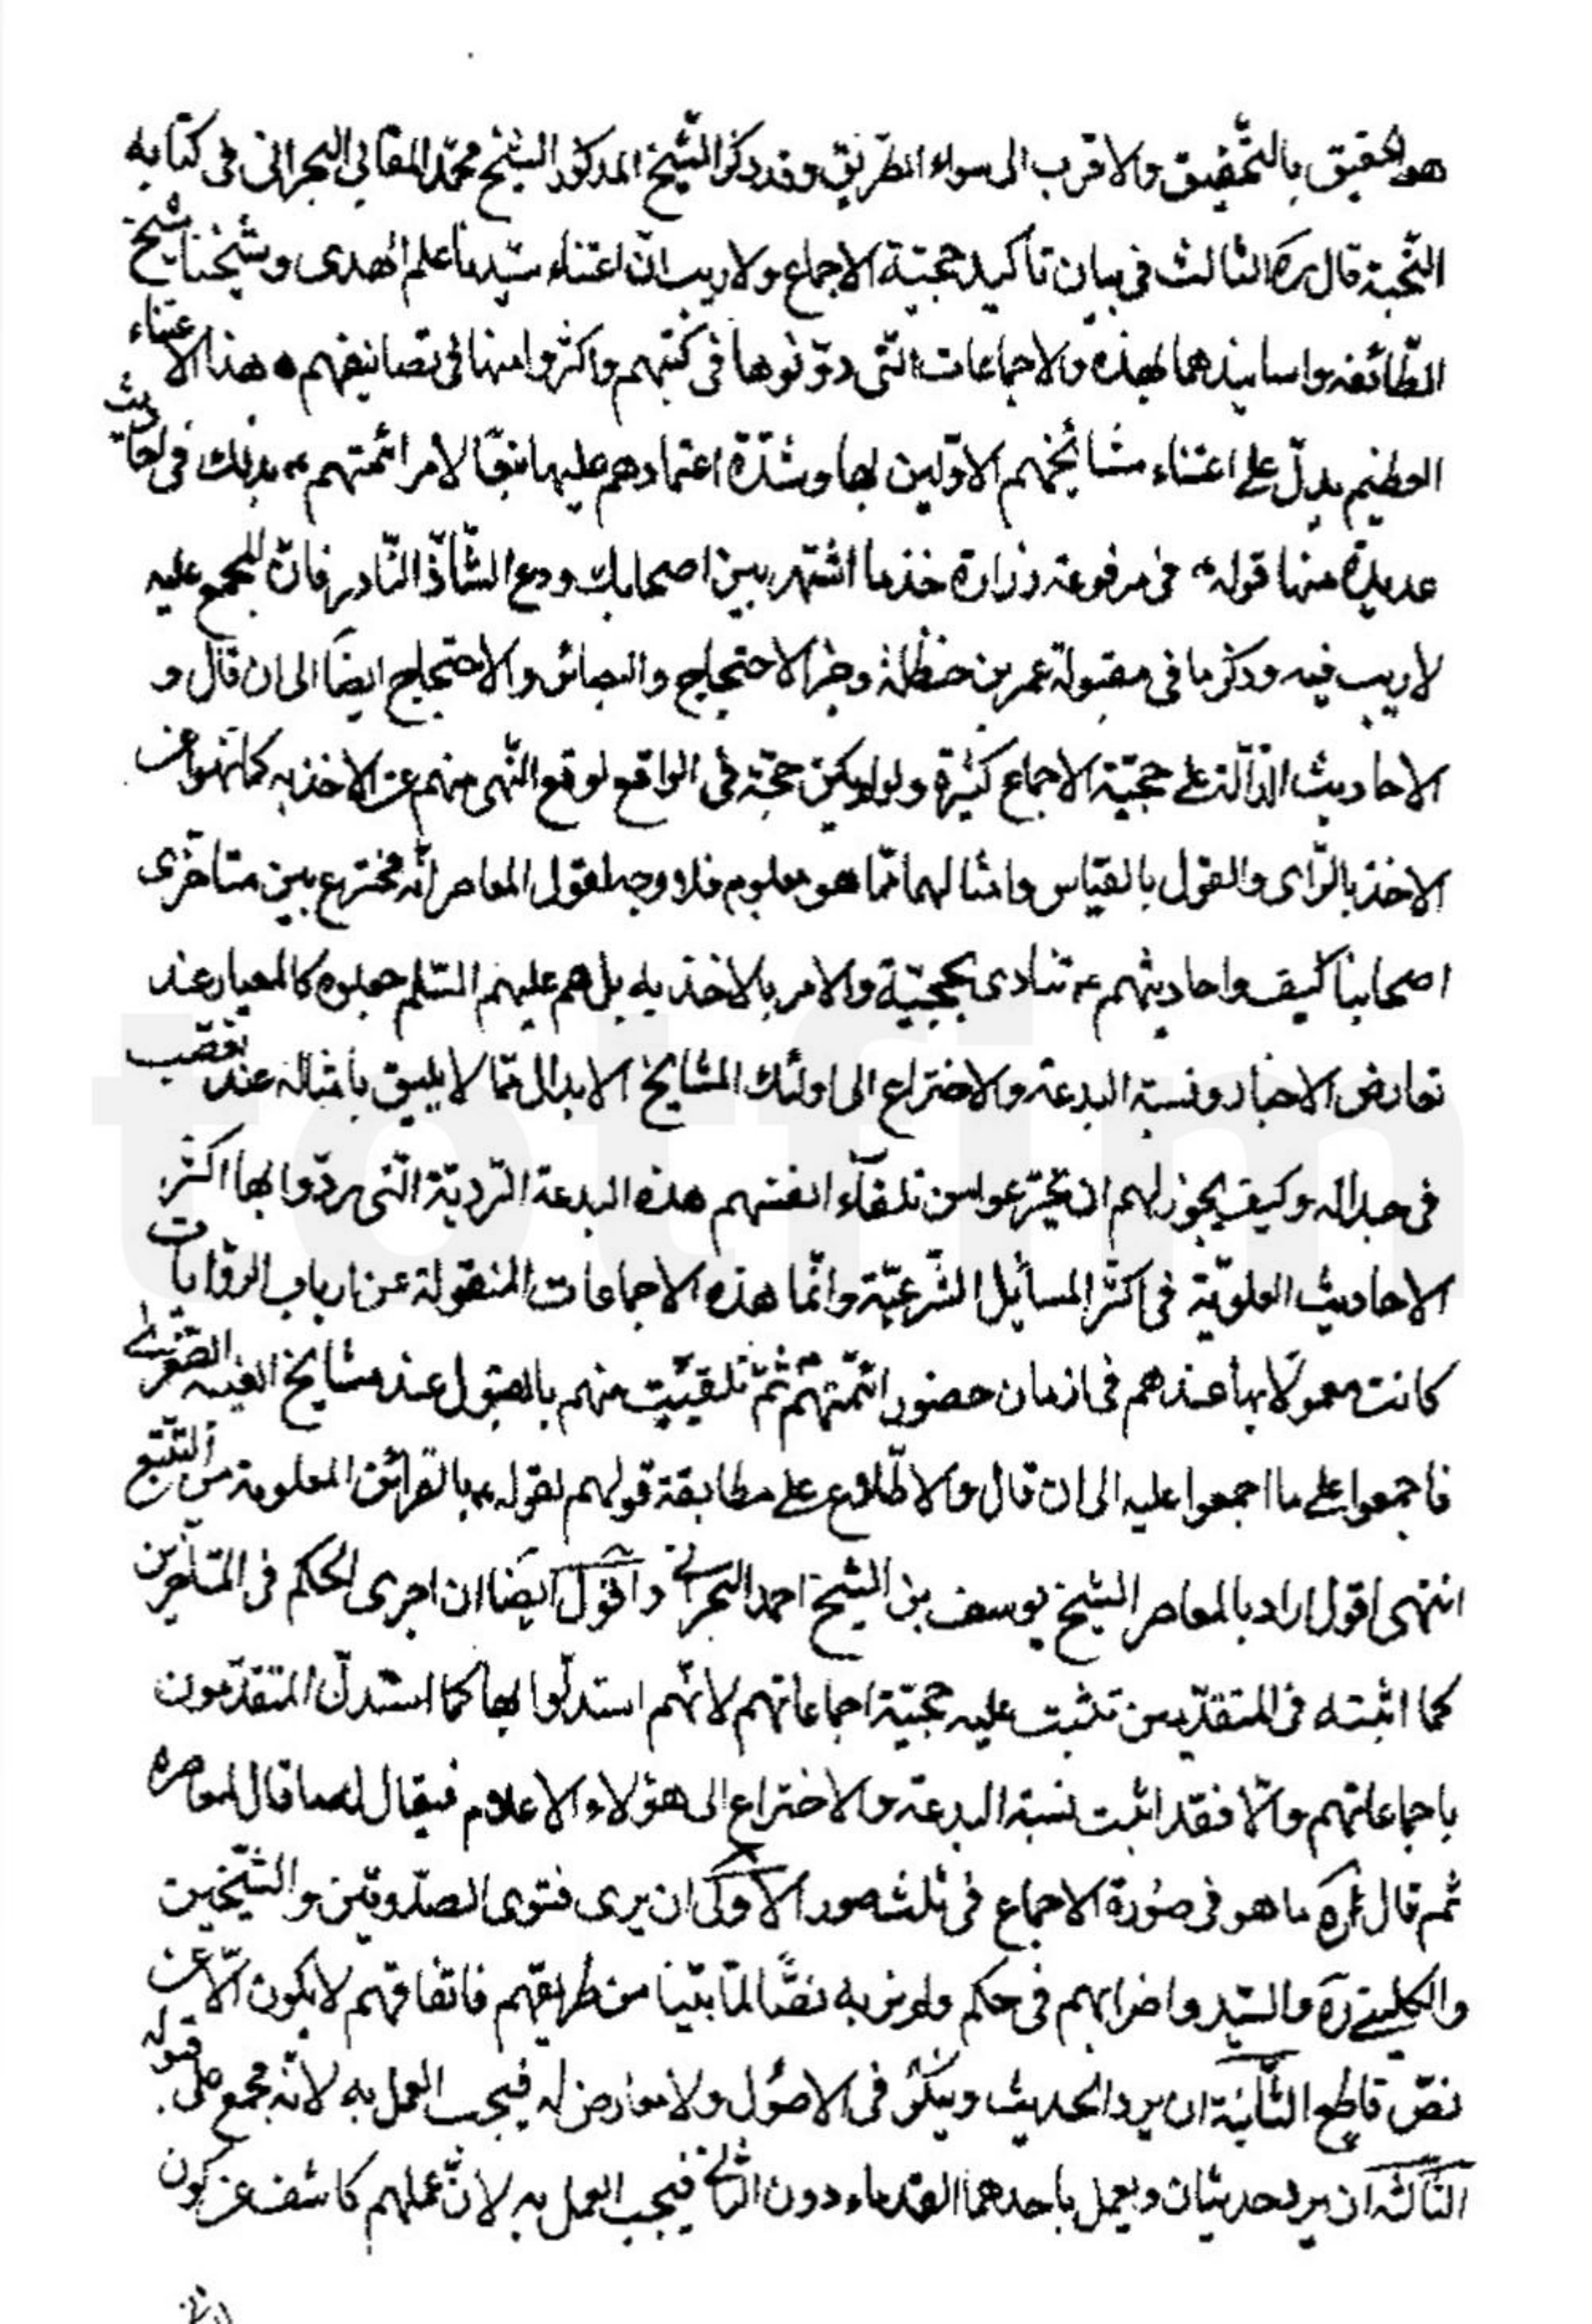 هو الحقيق بالتحقيق والاقرب الى سواء الطريق وقد ذكر الشيخ المذكور الشيخ محمد المقابي البحراني في كتابه
النخبة قال ره الثالث في بيان تأكيد حجية الاجماع ولا ريب ان اعتناء سيدنا علم الهدى وشيخنا شيخ
الطائفه واساتيذهما بهذه والاجماعات التي دونوها في كتبهم واكثروا منها في تصانيفهم هذا الاعتناء
العظيم يدل على اعتناء مشائخهم الاولين بها وشدة اعتمادهم عليها تبعا لامر ائمتهم ع بذلك في احاديث
عديدة منها قوله ع في مرفوعة زرارة خذ ما اشتهر بين اصحابك ودع الشاذ النادر فان المجمع عليه
لا ريب فيه وذكر ما في مقبولة عمر بن حنظلة وخبر الاحتجاج والبصائر والاحتجاج ايضا الى ان قال و
الاحاديث الدالة على حجية الاجماع كثيرة ولو لم يكن حجة في الواقع لوقع النهى منهم عن الاخذ به كما نهوا عن
الاخذ بالراى والقول بالقياس وامثالهما مما هو معلوم فلا وجه لقول المعاصر انه مخترع بين متاخرى
اصحابنا كيف واحاديثهم ع تنادى بحجيته والامر بالاخذ به بل هم عليهم السلم جعلوه كالمعيار عند
تعارض الاخبار ونسبة البدعة والاختراع الى اولئك المشايخ الابدال مما لا يليق بامثاله عند تعصب
في جداله وكيف يجوز لهم ان يخترعوا من تلقآء انفسهم هذه البدعة الردية التى ردوا بها اكثر
الاحاديث العلوية في اكثر المسائل الشرعية وانما هذه الاجماعات المنقولة عن ارباب الروايات
كانت معمولا بها عندهم في ازمان حضور ائمتهم ع ثم تلقيت منهم بالقبول عند مشايخ الغيبه الصغرى
فاجمعوا على ما اجمعوا عليه الى ان قال والاطلاع على مطابقة قولهم لقوله ع بالقرائن المعلومة من التتبع
انتهى اقول اراد بالمعاصر الشيخ يوسف بن الشيخ احمد البحراني واقول ايضا ان اجرى الحكم في المتاخرين
كما اثبته في المتقدمين تثبت عليه حجية اجماعاتهم لانهم استدلوا بها كما استدل المتقدمون
باجماعاتهم والا فقد اثبت نسبة البدعة والاختراع الى هؤلاء الاعلام فيقال له ما قال لمعاصره
ثم قال ره ما هو في صورة الاجماع في ثلث صور الاولى ان يرى فتوى الصدوقين والشيخين
والكليني ره والسيد واضرابهم في حكم ولم نر به نصا لما بينا من طريقتهم فاتفاقهم لا يكون الا عن
نص قاطع الثانية ان يرد الحديث ويتكرر في الاصول ولا معارض له فيجب العمل به لانه مجمع على قبوله
الثالثة ان يرد حديثان ويعمل باحدهما القدماء دون الثاني فيجب العمل به لان عملهم كاشف عن كون